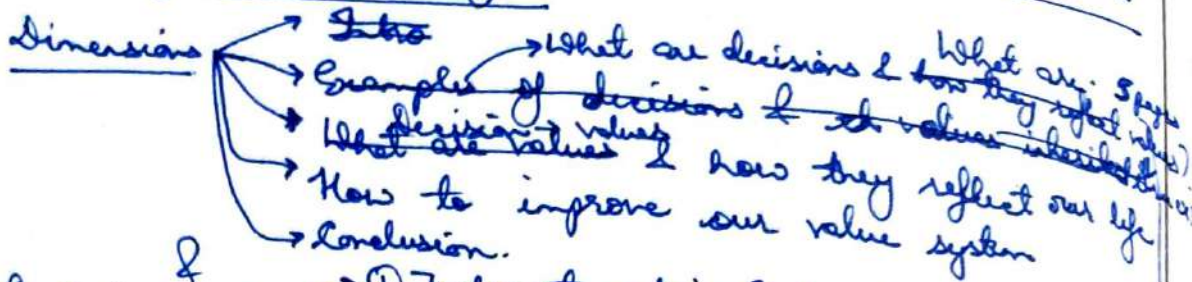 Dimensions
Intro
What are decisions & how they reflect values) What are 3 pages
Examples of decisions & values inherited
Decision → values
What are values & how they reflect our life
How to improve our value system
Conclusion.
&